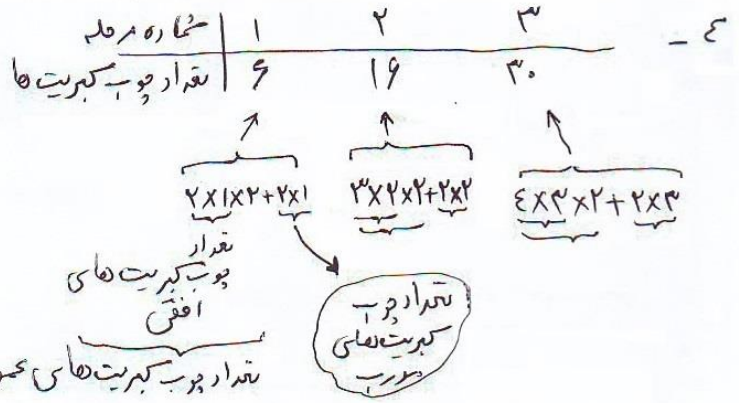 ٤ -
شماره مرحله | ۱ ۲ ۳
تعداد چوب کبریت ها | ۶ ۱۶ ۳۰
۲×۱×۲+۲×۱ ۳×۲×۲+۲×۲ ٤×۳×۲+۲×۳
تعداد
چوب کبریت های
افقی
تعداد چوب کبریت های عمو
تعداد چوب
کبریت های
مورب